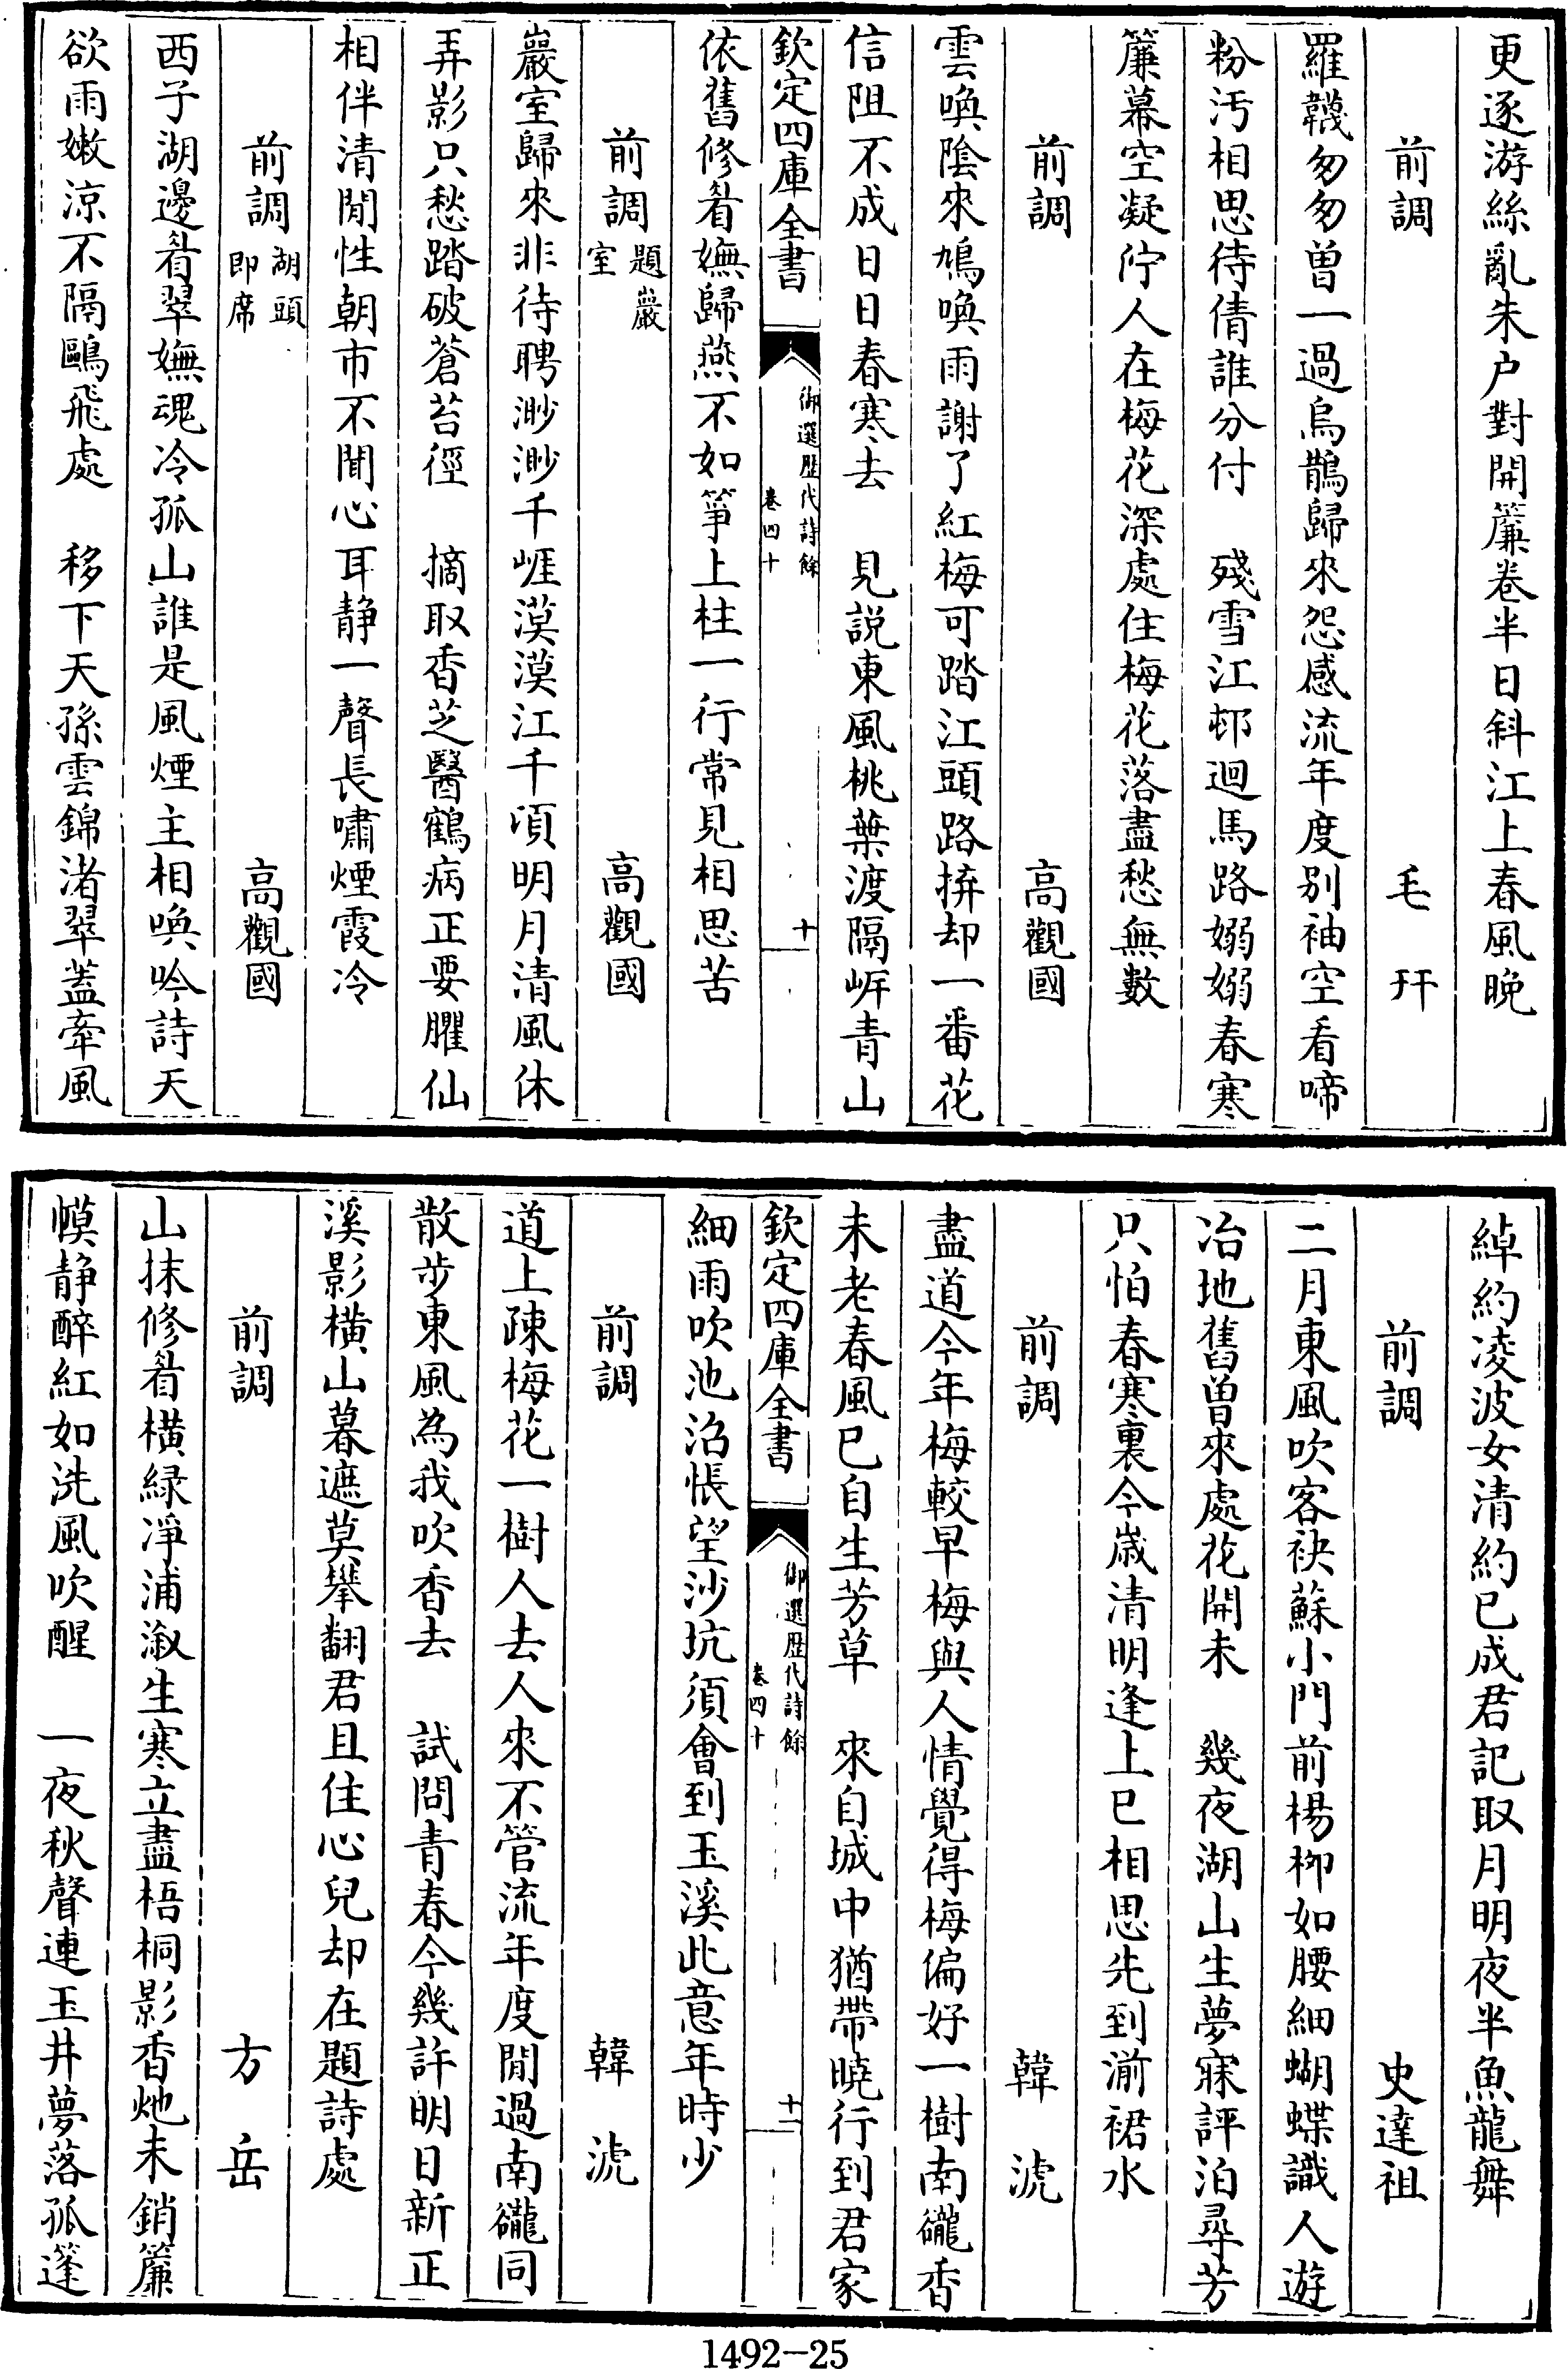 更逐游絲亂朱户對開簾卷半日斜江上春風晚
前調　毛幵
羅韈匆匆曾一過烏鵲歸來怨感流年度别袖空看啼
粉汚相思待倩誰分付　殘雪江邨迴馬路嫋嫋春寒
簾幕空凝佇人在梅花深處住梅花落盡愁無數
前調　高觀國
雲喚陰來鳩喚雨謝了紅梅可踏江頭路拚却一番花
信阻不成日日春寒去　見説東風桃葉渡隔岍青山
欽定四庫全書　御選歷代詩餘　卷四十　十
依舊修眉嫵歸燕不如箏上柱一行常見相思苦
前調　題巖室　高觀國
巖室歸來非待聘渺渺千崖漠漠江千頃明月清風休
弄影只愁踏破蒼苔徑　摘取香芝醫鶴病正要臞仙
相伴清閒性朝市不聞心耳静一聲長嘯煙霞冷
前調　湖頭即席　高觀國
西子湖邊眉翠嫵魂冷孤山誰是風煙主相喚吟詩天
欲雨嫩涼不隔鷗飛處　移下天孫雲錦渚翠蓋牽風
綽約凌波女清約已成君記取月明夜半魚龍舞
前調　史達祖
二月東風吹客袂蘇小門前楊柳如腰細蝴蝶識人遊
冶地舊曾來處花開未　幾夜湖山生夢寐評泊尋芳
只怕春寒裏今嵗清明逢上巳相思先到湔裙水
前調　韓淲
盡道今年梅較早梅與人情覺得梅偏好一樹南礲香
未老春風已自生芳草　來自城中猶帶曉行到君家
欽定四庫全書　御選歷代詩餘　卷四十　十一
細雨吹池沼悵望沙坑須會到玉溪此意年時少
前調　韓淲
道上疎梅花一樹人去人來不管流年度閒過南礲同
散步東風為我吹香去　試問青春今幾許明日新正
溪影横山暮遮莫攀翻君且住心兒却在題詩處
前調　方岳
山抹修眉横緑凈浦溆生寒立盡梧桐影香灺未銷簾
幙静醉紅如洗風吹醒　一夜秋聲連玉井夢落孤篷
1492-25